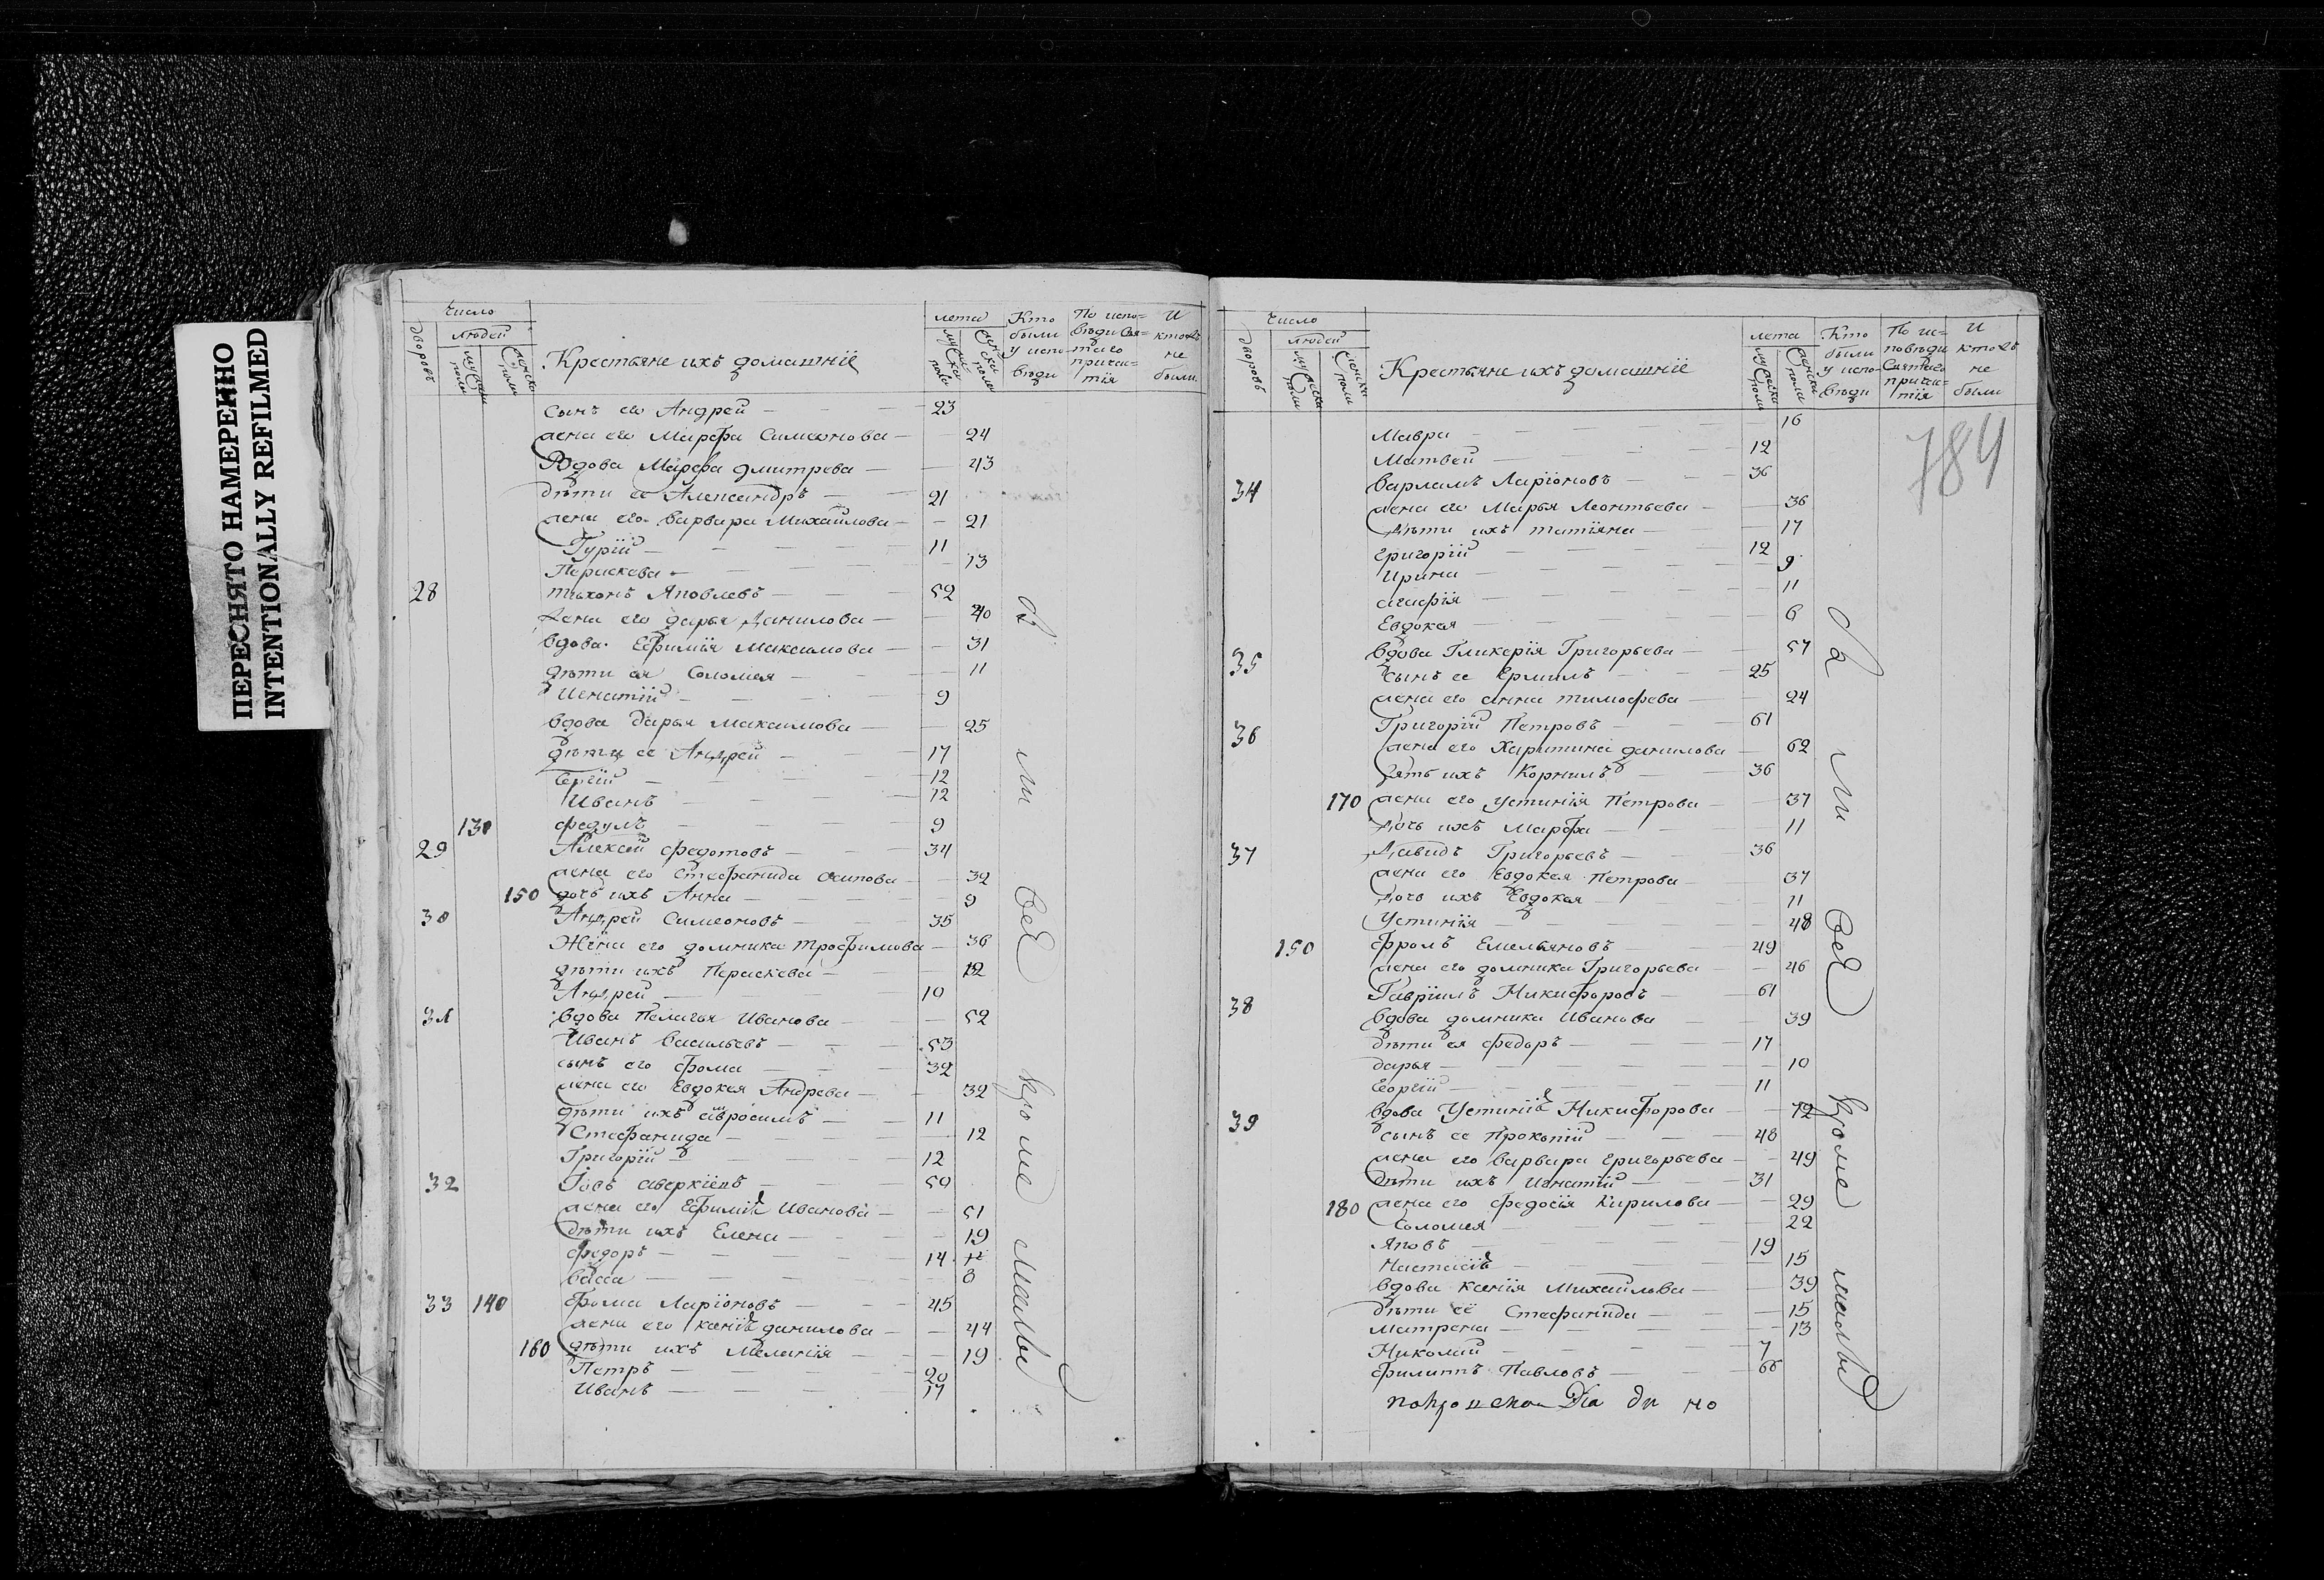 ПЕРЕСНЯТО НАМЕРЕННО
INTENTIONALLY REFILMED
Число
людей
дворовъ
Крестьяне ихъ домашніе
лета
Кто были у исповѣди
По исповѣди святаго причистія
И кто не были
сынъ его Андрей — 23
жена его Марфа Симеонова — 24
Вдова Марфа дмитрева — 43
дѣти ее Александръ — 21
жена его варвара Михайлова — 21
Гурій — 11
Параскева — 13
28 тихонъ Яковлевъ — 52
жена его дарья Данилова — 40
вдова Ефимія Максимова — 31
дѣти ея Соломея — 11
Игнатій — 9
вдова дарья максимова — 25
дѣти ее Андрей — 17
Сергій — 12
Иванъ — 12
130 федулъ — 9
29 Алексей федотовъ — 34
жена его Стефанида осипова — 32
150 дочь ихъ Анна — 9
30 Андрей Симеоновъ — 35
Жена его домника трофимова — 36
дѣти ихъ Параскева — 12
Андрей — 10
31 вдова Пелагья Иванова — 52
Иванъ васильевъ — 53
сынъ его фома — 32
жена его Евдокея Андрева — 32
дѣти ихъ — 11
Стефанида — 12
Григорій — 12
32 Іовъ аверкіевъ — 50
жена его Ефимія Иванова — 51
дѣти ихъ Елена — 19
федоръ — 14
васса — 8
33 140 фома Ларіоновъ — 45
жена его ксенія данилова — 44
160 дѣти ихъ Меланія — 19
Петръ — 20
Иванъ — 17
были все кроме малых
Число
людей
дворовъ
Крестьяне ихъ домашніе
лета
Кто были у исповѣди
По исповѣди Святаго причистія
И кто не были
784
Мавра — 16
Матвей — 12
34 варламъ Ларіоновъ — 36
жена его Марья Леонтьева — 36
Дѣти ихъ татіяна — 17
григорій — 12
Ирина — 9
агафія — 11
Евдокея — 6
35 вдова Гликерія Григорьева — 57
сынъ ее Ермилъ — 25
жена его анна тимофева — 24
36 Григорій Петровъ — 61
жена его Харитина данилова — 62
зять ихъ Корнилъ — 36
170 жена его устинія Петрова — 37
Дочь ихъ Марфа — 11
37 Давидъ Григорьевъ — 36
жена его Евдокея Петрова — 37
Дочь ихъ Евдокея — 11
Устинія — 48
150 фролъ Емельяновъ — 49
жена его домника Григорьева — 46
38 Гавріилъ Никифоровъ — 61
вдова домника Иванова — 39
дѣти ея федоръ — 17
дарья — 10
Георгій — 11
39 вдова Устинія Никифорова — 72
сынъ ее Прокопій — 48
жена его варвара григорьева — 49
Дѣти ихъ Игнатій — 31
180 жена его федосія Кирилова — 29
Соломея — 22
Яковъ — 19
Настасія — 15
вдова ксенія Михайлова — 39
дѣти её Стефанида — 15
Матрена — 13
Николай — 7
филиппъ Павловъ — 66
были все кроме малых